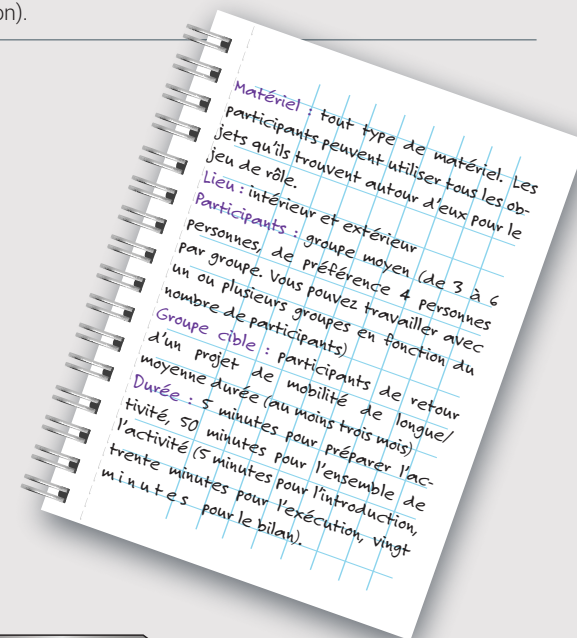 on).
Matériel : tout type de matériel. Les
participants peuvent utiliser tous les ob-
jets qu'ils trouvent autour d'eux pour le
jeu de rôle.
Lieu : intérieur et extérieur
Participants : groupe moyen (de 3 à 6
personnes, de préférence 4 personnes
par groupe. Vous pouvez travailler avec
un ou plusieurs groupes en fonction du
nombre de participants)
Groupe cible : participants de retour
d'un projet de mobilité de longue/
moyenne durée (au moins trois mois)
Durée : 5 minutes pour préparer l'ac-
tivité, 50 minutes pour l'ensemble de
l'activité (5 minutes pour l'introduction,
trente minutes pour l'exécution, vingt
minutes pour le bilan).